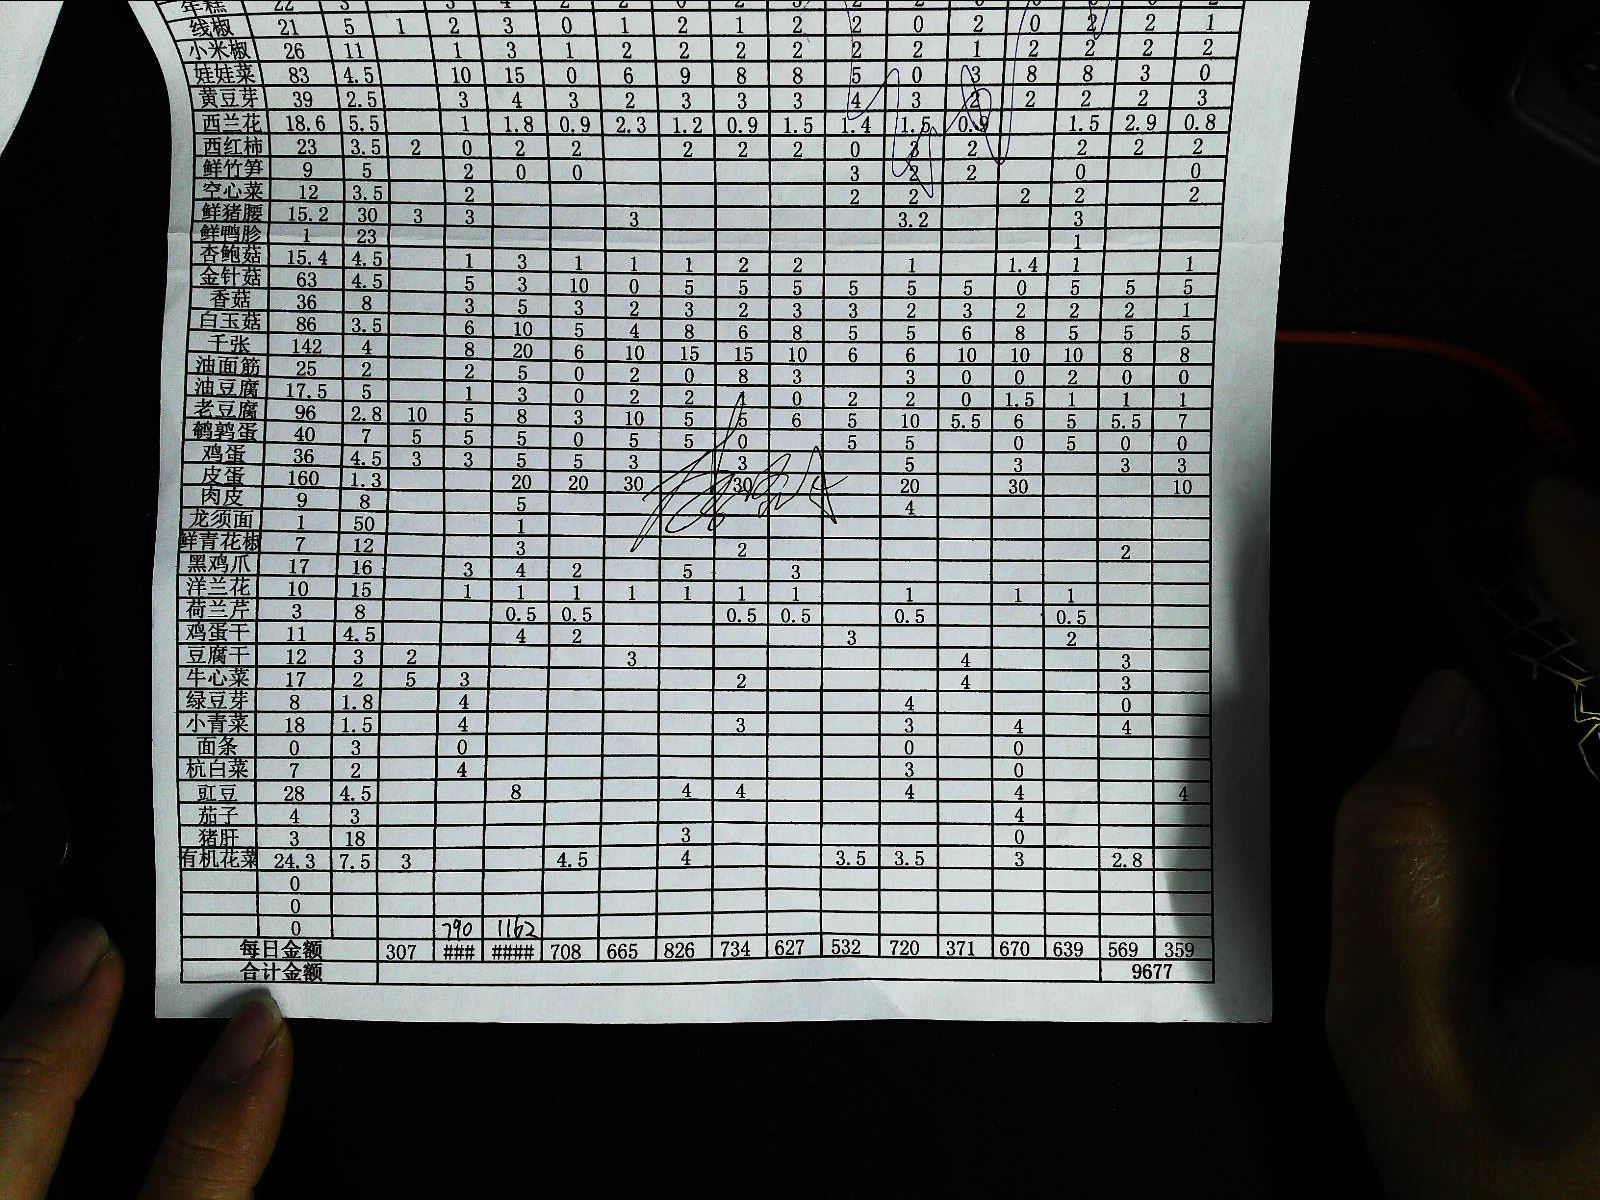 年糕 22 3 3 4 2 2 0 2 3 2 2 0 0 0 0 2
线椒 21 5 1 2 3 0 1 2 1 2 2 0 2 0 2 2 1
小米椒 26 11 1 3 1 2 2 2 2 2 2 1 2 2 2 2
娃娃菜 83 4.5 10 15 0 6 9 8 8 5 0 3 8 8 3 0
黄豆芽 39 2.5 3 4 3 2 3 3 3 4 3 2 2 2 2 3
西兰花 18.6 5.5 1 1.8 0.9 2.3 1.2 0.9 1.5 1.4 1.5 0.9 1.5 2.9 0.8
西红柿 23 3.5 2 0 2 2 2 2 2 0 3 2 2 2 2
鲜竹笋 9 5 2 0 0 3 2 2 0 0
空心菜 12 3.5 2 2 2 2 2 2
鲜猪腰 15.2 30 3 3 3 3.2 3
鲜鸭胗 1 23 1
杏鲍菇 15.4 4.5 1 3 1 1 1 2 2 1 1.4 1 1
金针菇 63 4.5 5 3 10 0 5 5 5 5 5 5 0 5 5 5
香菇 36 8 3 5 3 2 3 2 3 3 2 3 2 2 2 1
白玉菇 86 3.5 6 10 5 4 8 6 8 5 5 6 8 5 5 5
千张 142 4 8 20 6 10 15 15 10 6 6 10 10 10 8 8
油面筋 25 2 2 5 0 2 0 8 3 3 0 0 2 0 0
油豆腐 17.5 5 1 3 0 2 2 1 0 2 2 0 1.5 1 1 1
老豆腐 96 2.8 10 5 8 3 10 5 5 6 5 10 5.5 6 5 5.5 7
鹌鹑蛋 40 7 5 5 5 0 5 5 0 5 5 0 5 0 0
鸡蛋 36 4.5 3 3 5 5 3 3 5 3 3 3
皮蛋 160 1.3 20 20 30 30 20 30 10
肉皮 9 8 5 4
龙须面 1 50 1
鲜青花椒 7 12 3 2 2
黑鸡爪 17 16 3 4 2 5 3
洋兰花 10 15 1 1 1 1 1 1 1 1 1 1
荷兰芹 3 8 0.5 0.5 0.5 0.5 0.5 0.5
鸡蛋干 11 4.5 4 2 3 2
豆腐干 12 3 2 3 4 3
牛心菜 17 2 5 3 2 4 3
绿豆芽 8 1.8 4 4 0
小青菜 18 1.5 4 3 3 4 4
面条 0 3 0 0 0
杭白菜 7 2 4 3 0
豇豆 28 4.5 8 4 4 4 4 4
茄子 4 3 4
猪肝 3 18 3 0
有机花菜 24.3 7.5 3 4.5 4 3.5 3.5 3 2.8
0
0
0 790 1162
每日金额 307 ### #### 708 665 826 734 627 532 720 371 670 639 569 359
合计金额 9677